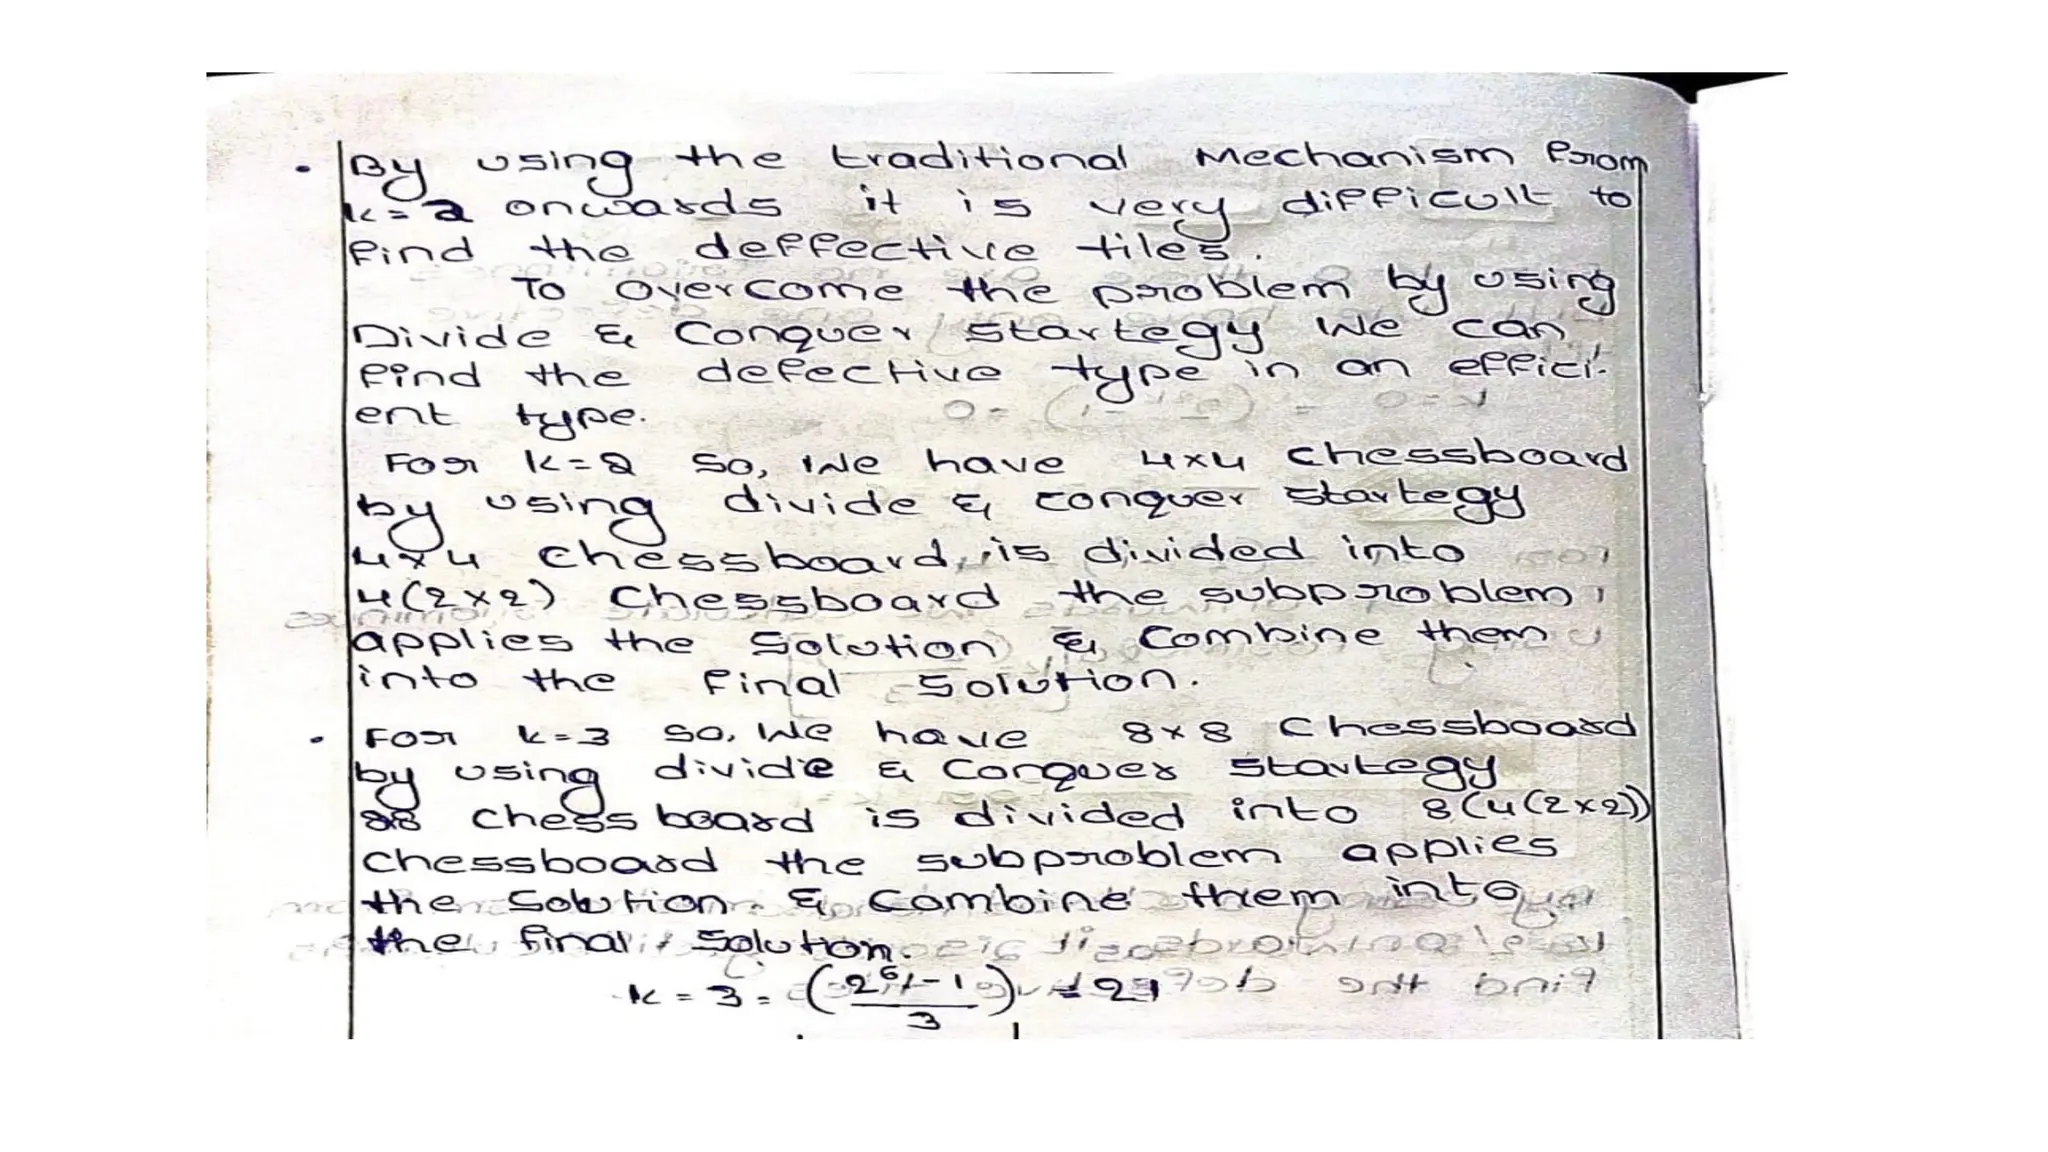 • By using the traditional Mechanism from
k=2 onwards it is very difficult to
find the deffective tiles.
To overcome the problem by using
Divide & Conquer startegy we can
find the defective type in an effici-
ent type.
For k=2 so, we have 4x4 chessboard
by using divide & conquer startegy
4x4 chessboard is divided into
4(2x2) chessboard the subproblem
applies the solution & combine them
into the final solution.
• For k=3 so, we have 8x8 chessboard
by using divide & conquer startegy
8x8 chessboard is divided into 8(4(2x2))
chessboard the subproblem applies
the solution & combine them into
the final solution.
k=3 = (2^6-1/3) = 21